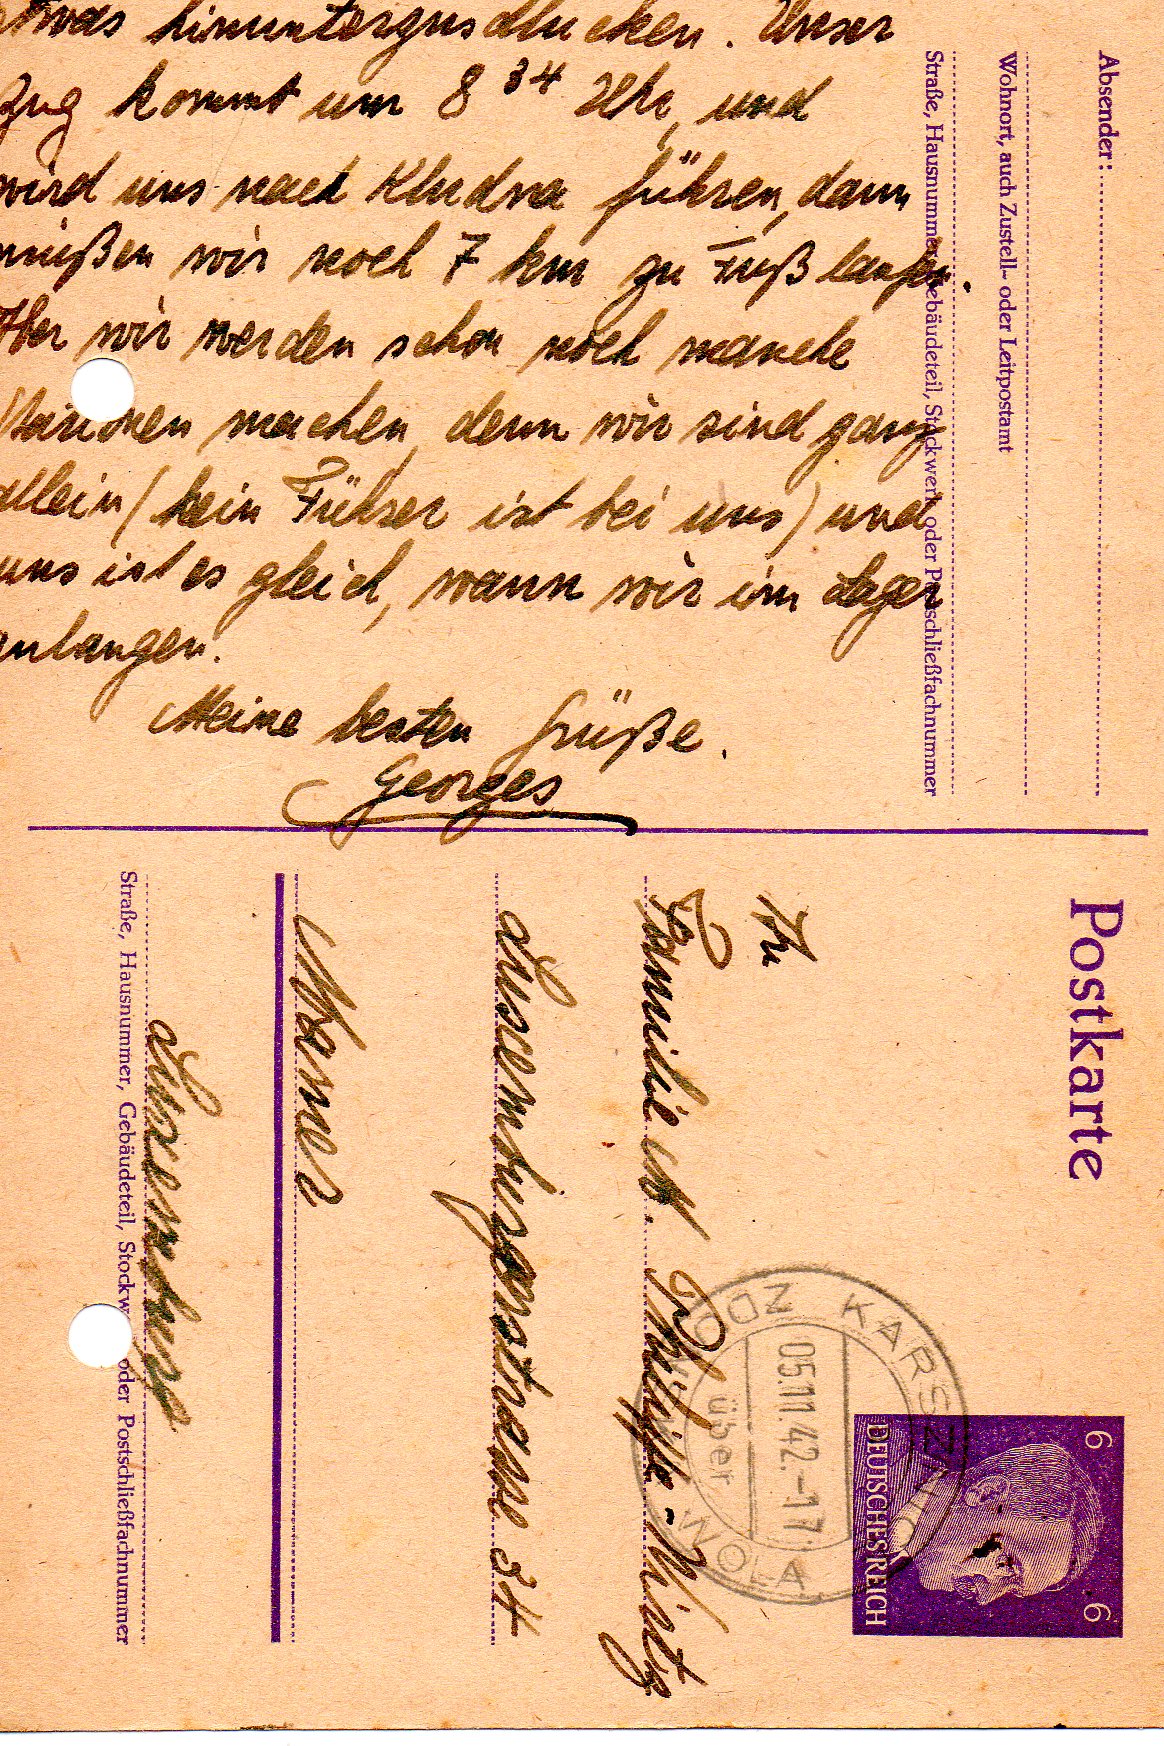 etwas hinunterzuschlucken. Unser
Zug kommt um 8 34 Uhr, und
wird uns nach Kludna führen, dann
müßen wir noch 7 km zu Fuß laufen.
Aber wir werden schon noch manche
Stationen machen, denn wir sind ganz
allein (kein Führer ist bei uns) und
uns ist es gleich, wann wir im Lager
anlangen.
Meine besten Grüße.
Georges
Absender:
Wohnort, auch Zustell- oder Leitpostamt
Straße, Hausnummer, Gebäudeteil, Stockwerk oder Postschließfachnummer
Postkarte
An
Familie M. Philippe-Weitz
Luxemburgerstrasse 34
Mamer
Luxemburg
Straße, Hausnummer, Gebäudeteil, Stockwerk oder Postschließfachnummer
KARSZNICE
05.11.42.-17
über
WOLA
6 6
DEUTSCHES REICH